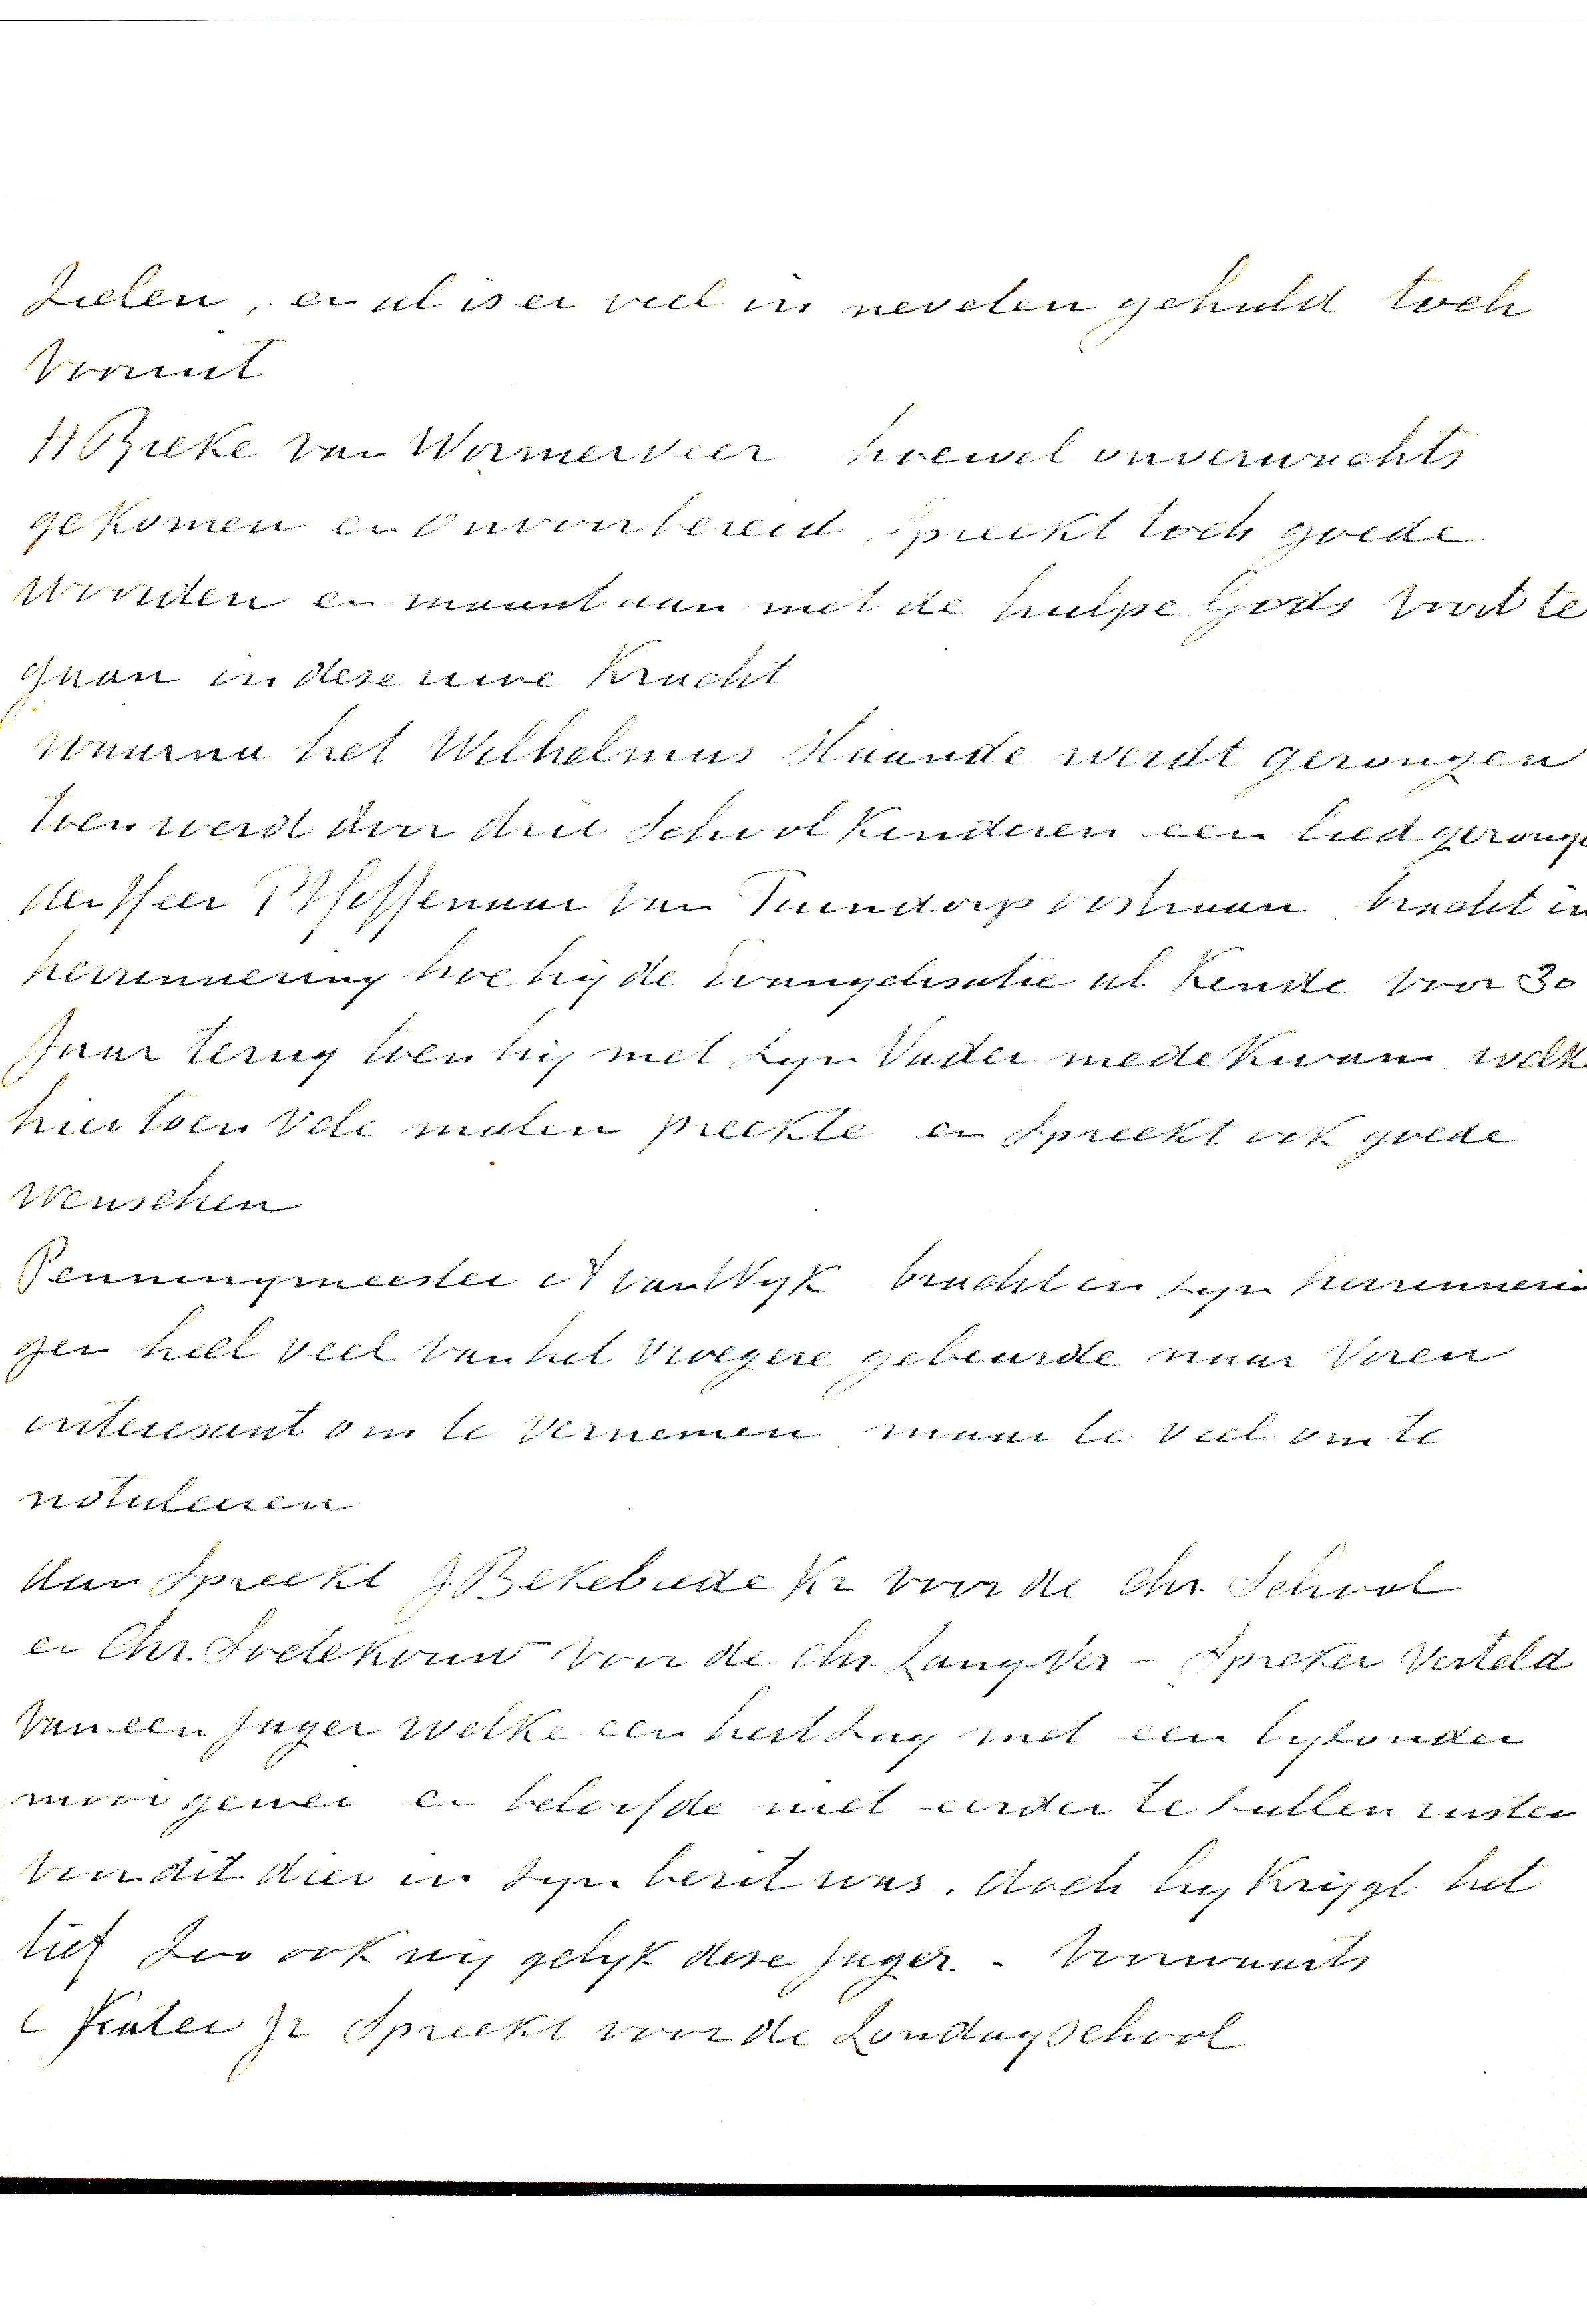 Zielen, en al is er veel in nevelen gehuld toch
vooruit
H Brieke van Wormerveer hoewel onverwachts
gekomen en onvoorbereid, spreekt toch goede
woorden en maant aan met de hulpe Gods voort te
gaan in deze uwe Kracht
waarna het Wilhelmus staande werdt gezongen
toen werd door drie School Kinderen een lied gezonge
den Heer van Tuindorp oostzaan bracht in
herrinnering hoe hij de Evangelisatie al Kende voor 30
Jaar terug toen hij met zijn Vader mede Kwam welk
hier toen vele malen preekte en spreekt ook goede
wenschen
Penningmeester A van Wijk bracht in zijn herrinnerin
gen heel veel van het vroegere gebeurde naar voren
interesant om te vernemen maar te veel om te
notuleeren
dan Spreekt J Bekebrede Kz voor de Chr. School
en Chr. Soetekouw voor de Chr. Zang Ver - Spreker Verteld
van een Jager welke een hert zag met een byzonder
mooi gewei en beloofde niet eerder te zullen rusten
voor dit dier in zijn bezit was. doch hij Krijgt het
lief Zoo ook wij gelyk deze Jager. - Voorwaarts
C Kater Jz Spreekt voor de Zondagschool